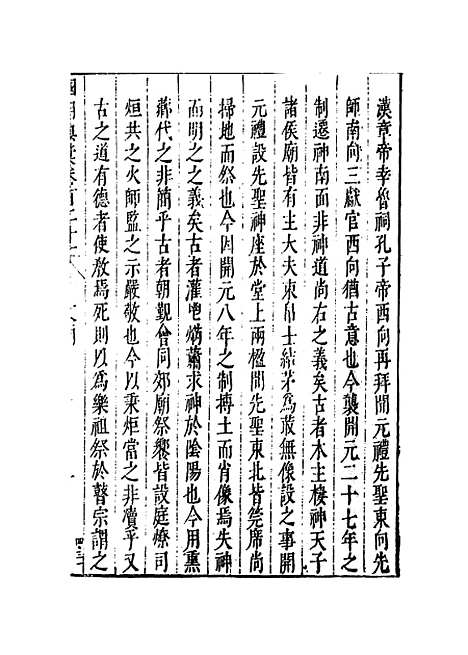 漢章帝幸魯祠孔子帝西向再拜開元禮先聖東向先
師南向三獻官西向猶古意也今襲開元二十七年之
制遷神南面非神道尚右之義矣古者木主棲神天子
諸侯廟皆有主大夫束帛士結茅為菆無像設之事開
元禮設先聖神座於堂上兩楹間先聖東北皆筦席尚
掃地而祭也今因開元八年之制摶土而肖像焉失神
而明之之義矣古者灌鬯焫蕭求神於陰陽也今用熏
薌代之非簡乎古者朝覲會同郊廟祭饗皆設庭燎司
烜共之火師監之示嚴敬也今以秉炬當之非瀆乎又
古之道有德者使教焉死則以為樂祖祭於瞽宗謂之